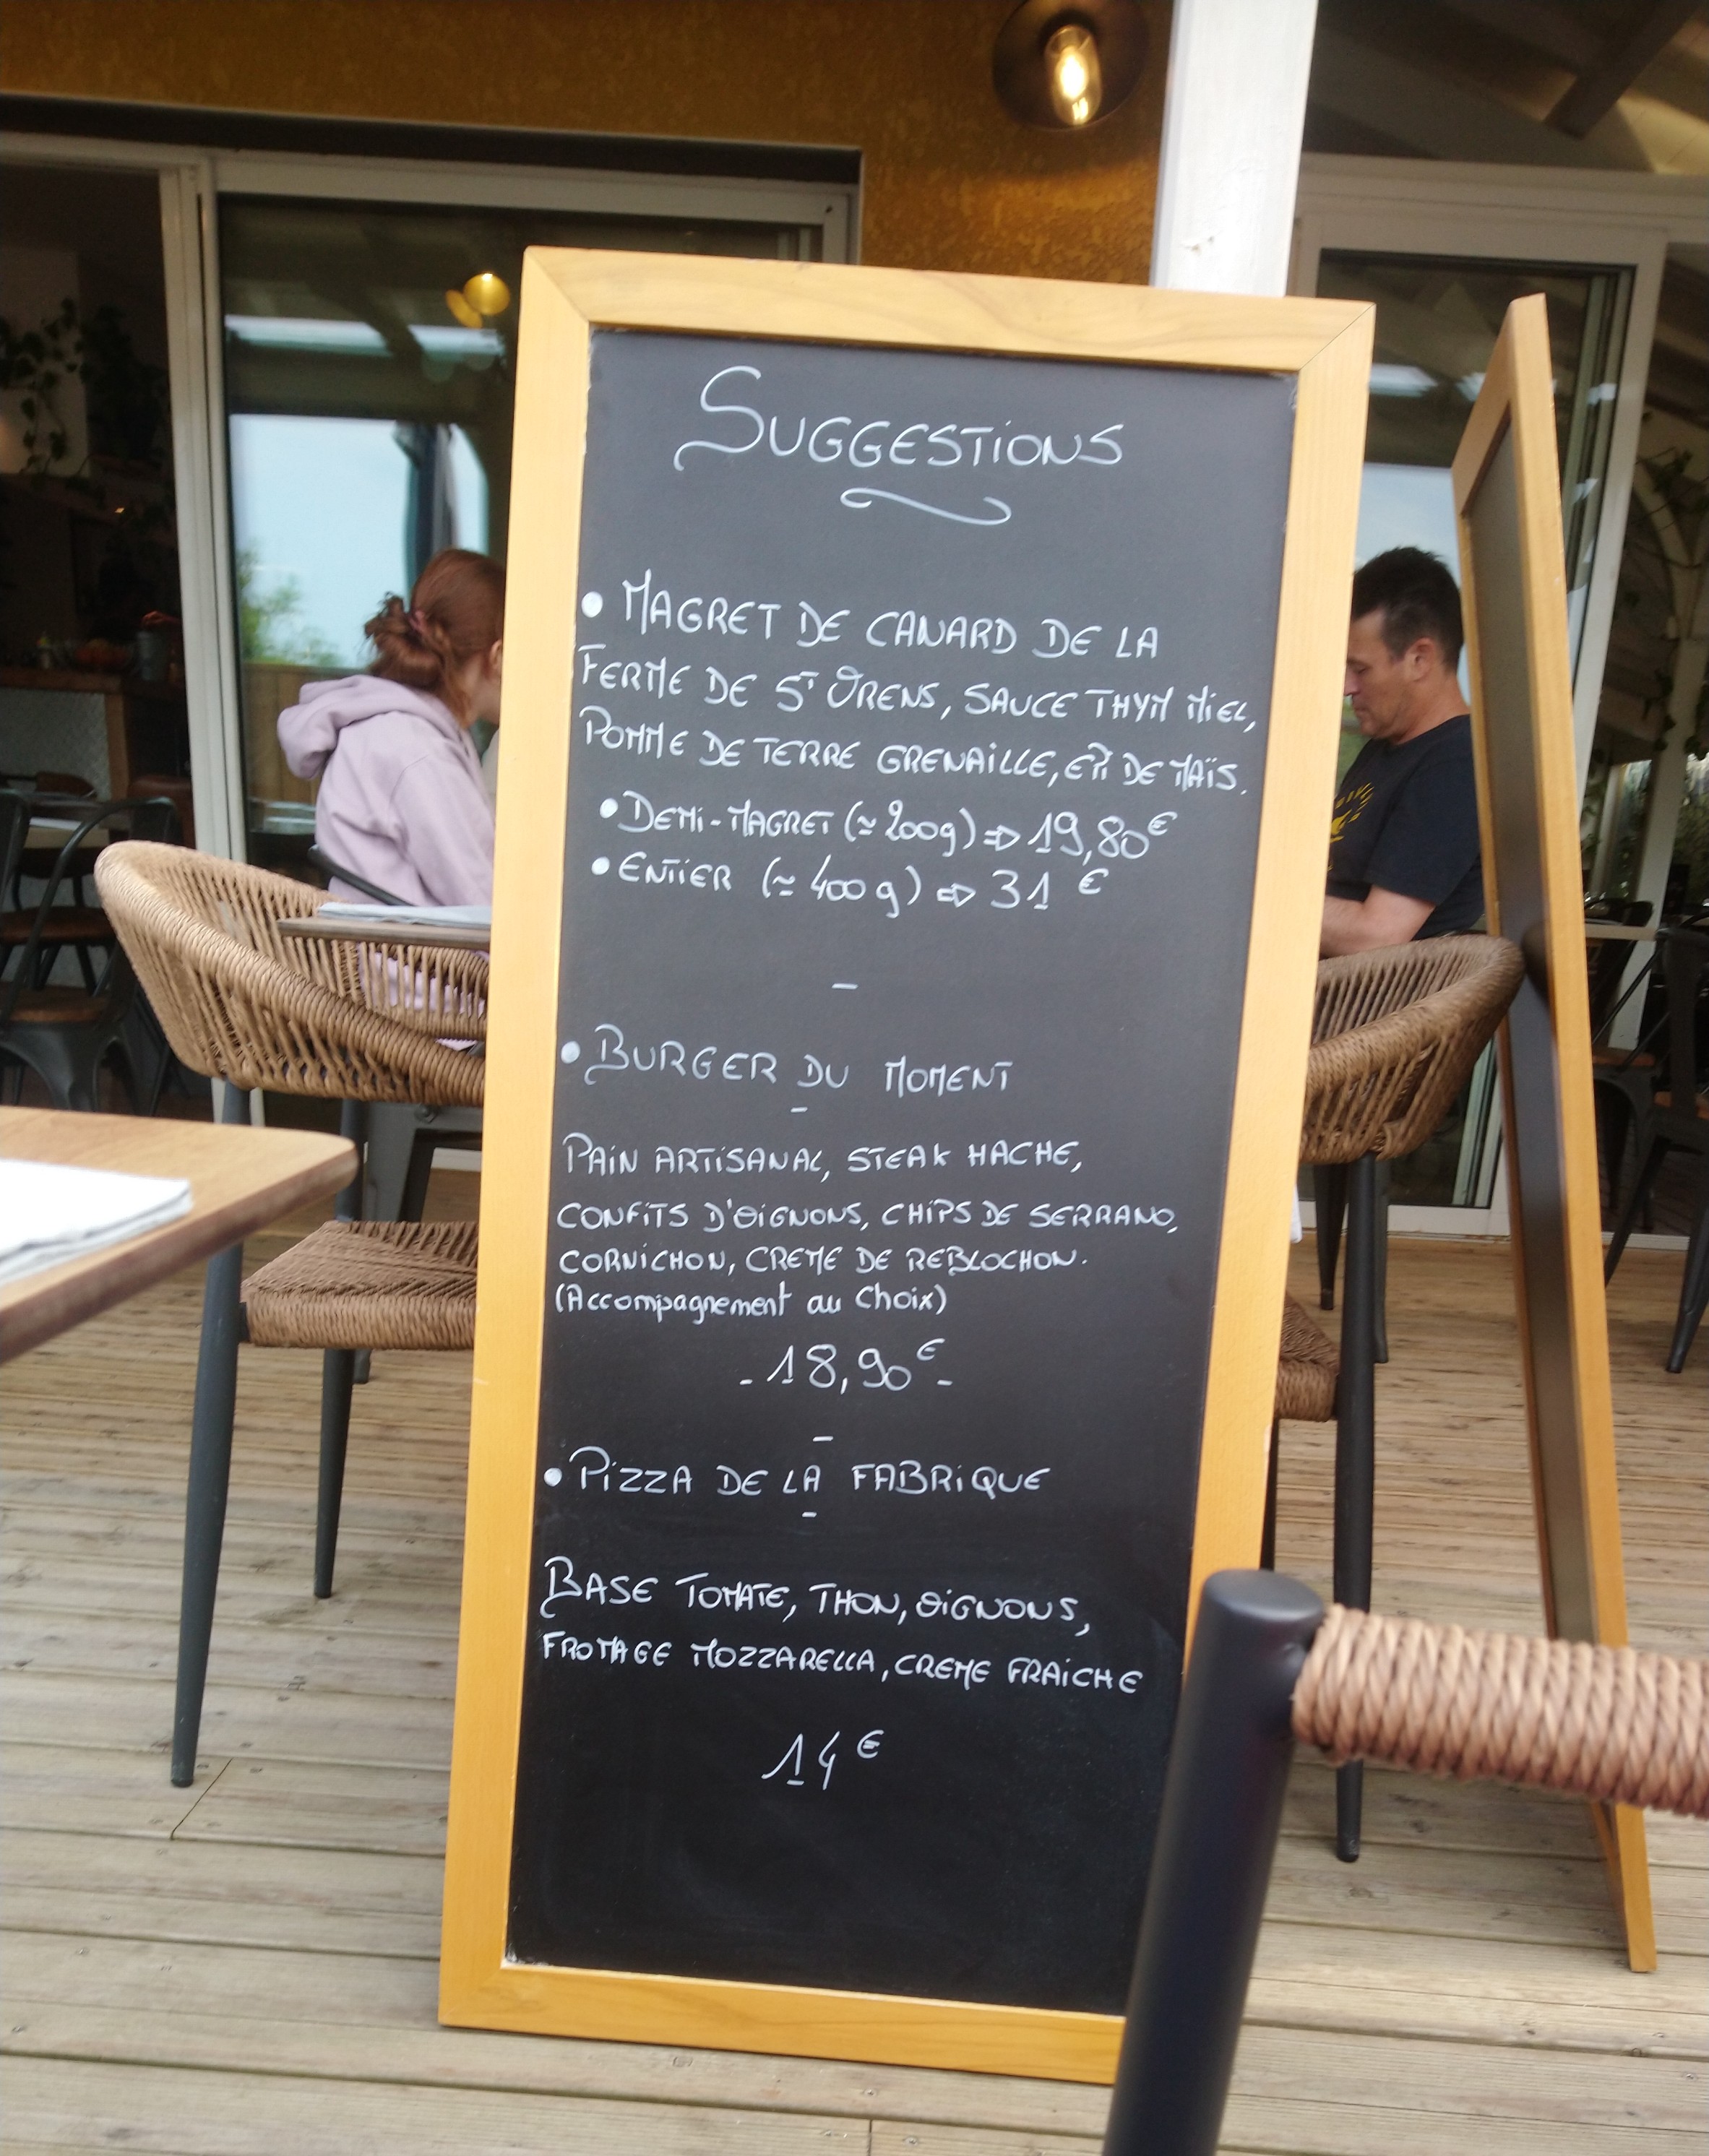 SUGGESTIONS
• MAGRET DE CANARD DE LA
FERME DE ST ORENS, SAUCE THYM MIEL,
POMME DE TERRE GRENAILLE, EPI DE MAÏS.
• DEMI-MAGRET (≃ 200g) ⇨ 19,80€
• ENTIER (≃ 400g) ⇨ 31 €
–
• BURGER DU MOMENT
–
PAIN ARTISANAL, STEAK HACHE,
CONFITS D'OIGNONS, CHIPS DE SERRANO,
CORNICHON, CREME DE REBLOCHON.
(Accompagnement au choix)
- 18,90€ -
–
• PIZZA DE LA FABRIQUE
–
BASE TOMATE, THON, OIGNONS,
FROMAGE MOZZARELLA, CREME FRAICHE
14€